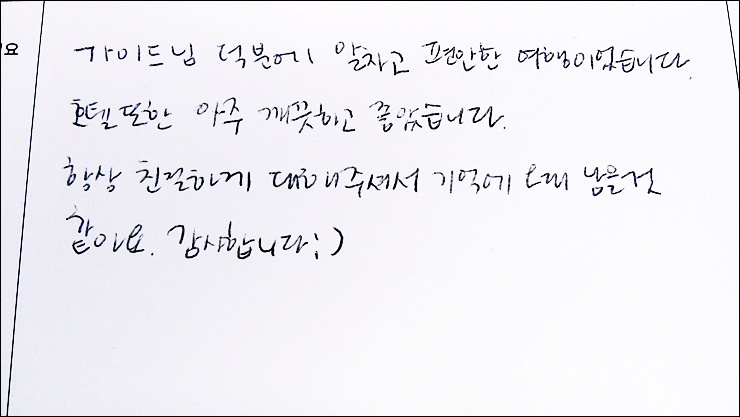 요
가이드님 덕분에 알차고 편안한 여행이었습니다.
호텔또한 아주 깨끗하고 좋았습니다.
항상 친절하게 대해주셔서 기억에 오래 남을것
같아요. 감사합니다:)